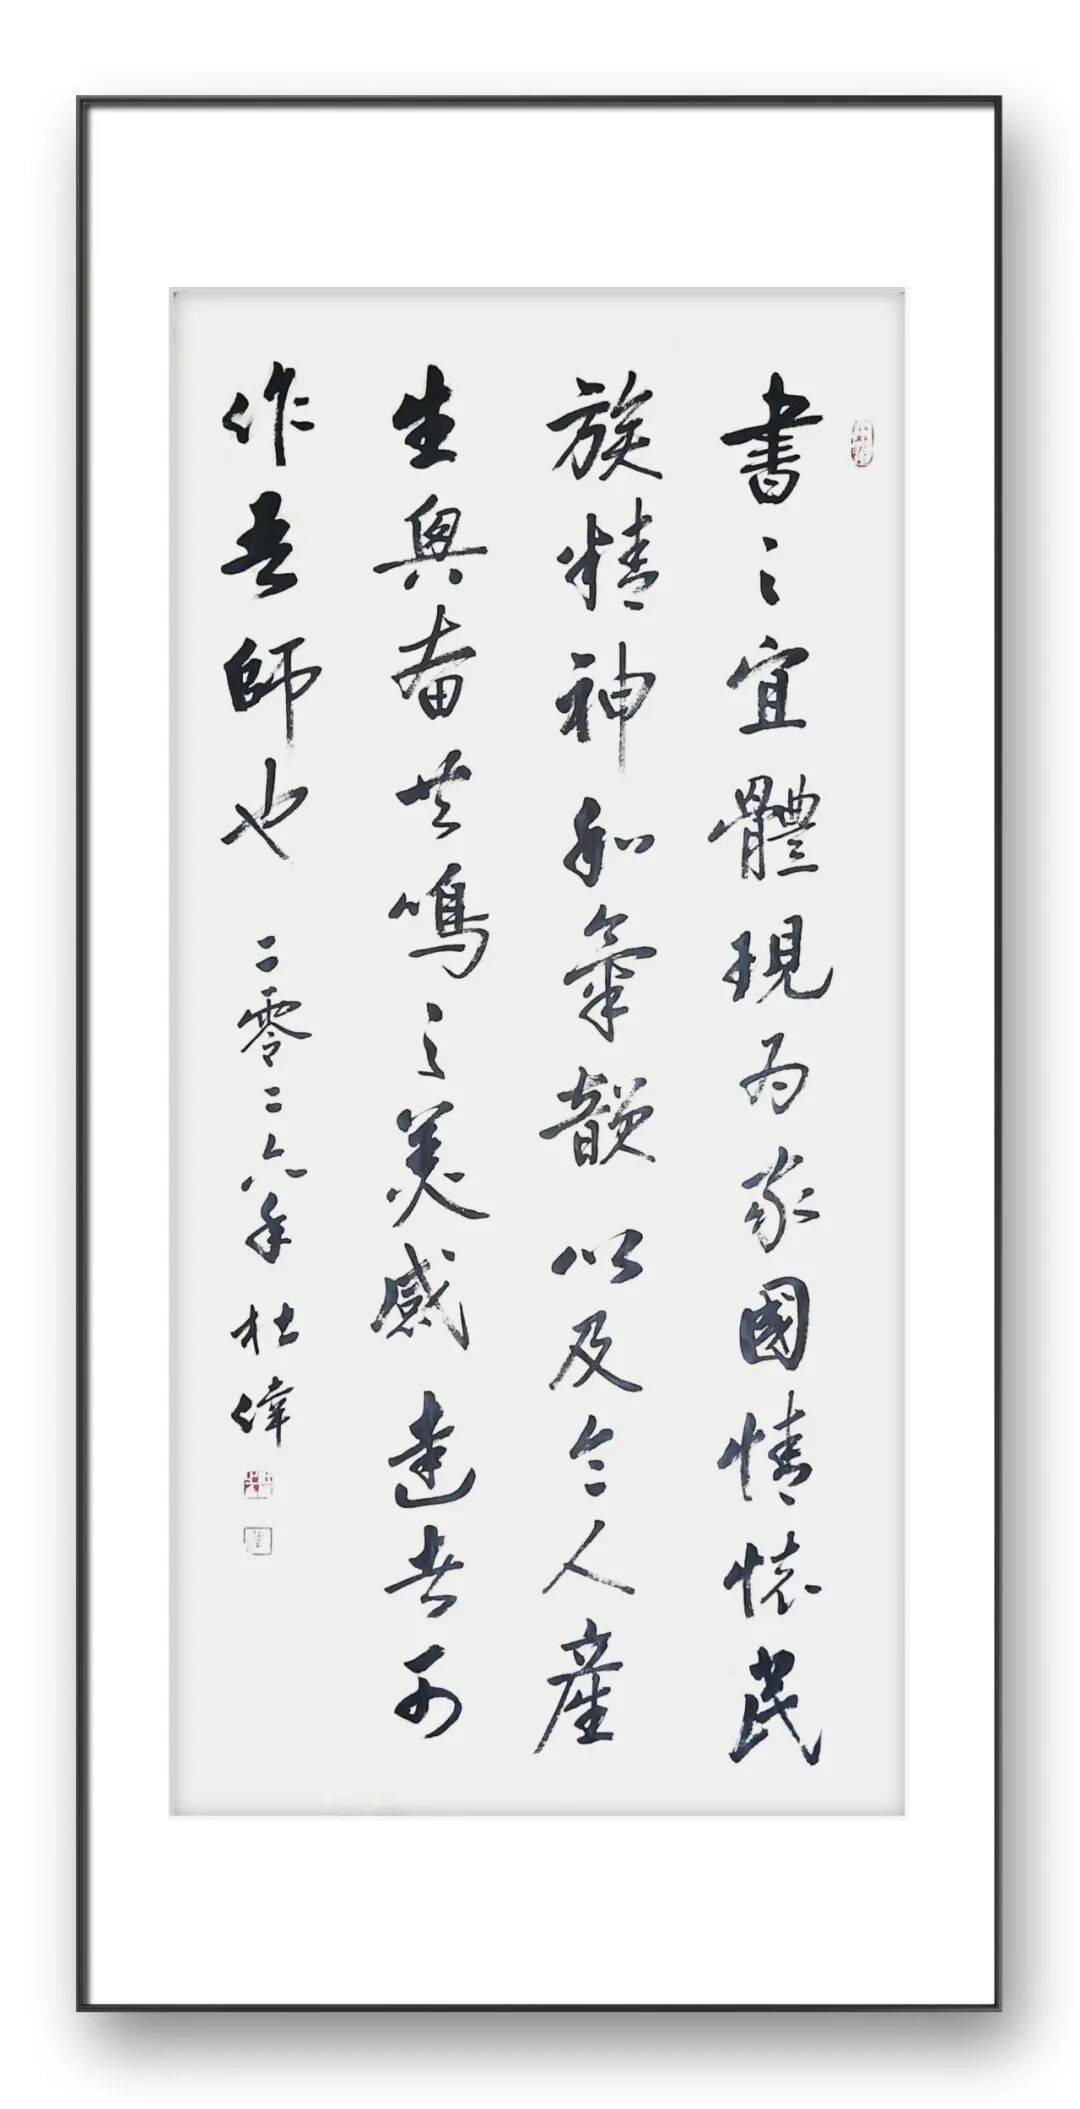 書之宜體現为家國情懷民
族精神和氣韻以及令人產
生興奋共鳴之美感達者可
作吾師也 二零二六年 杜偉